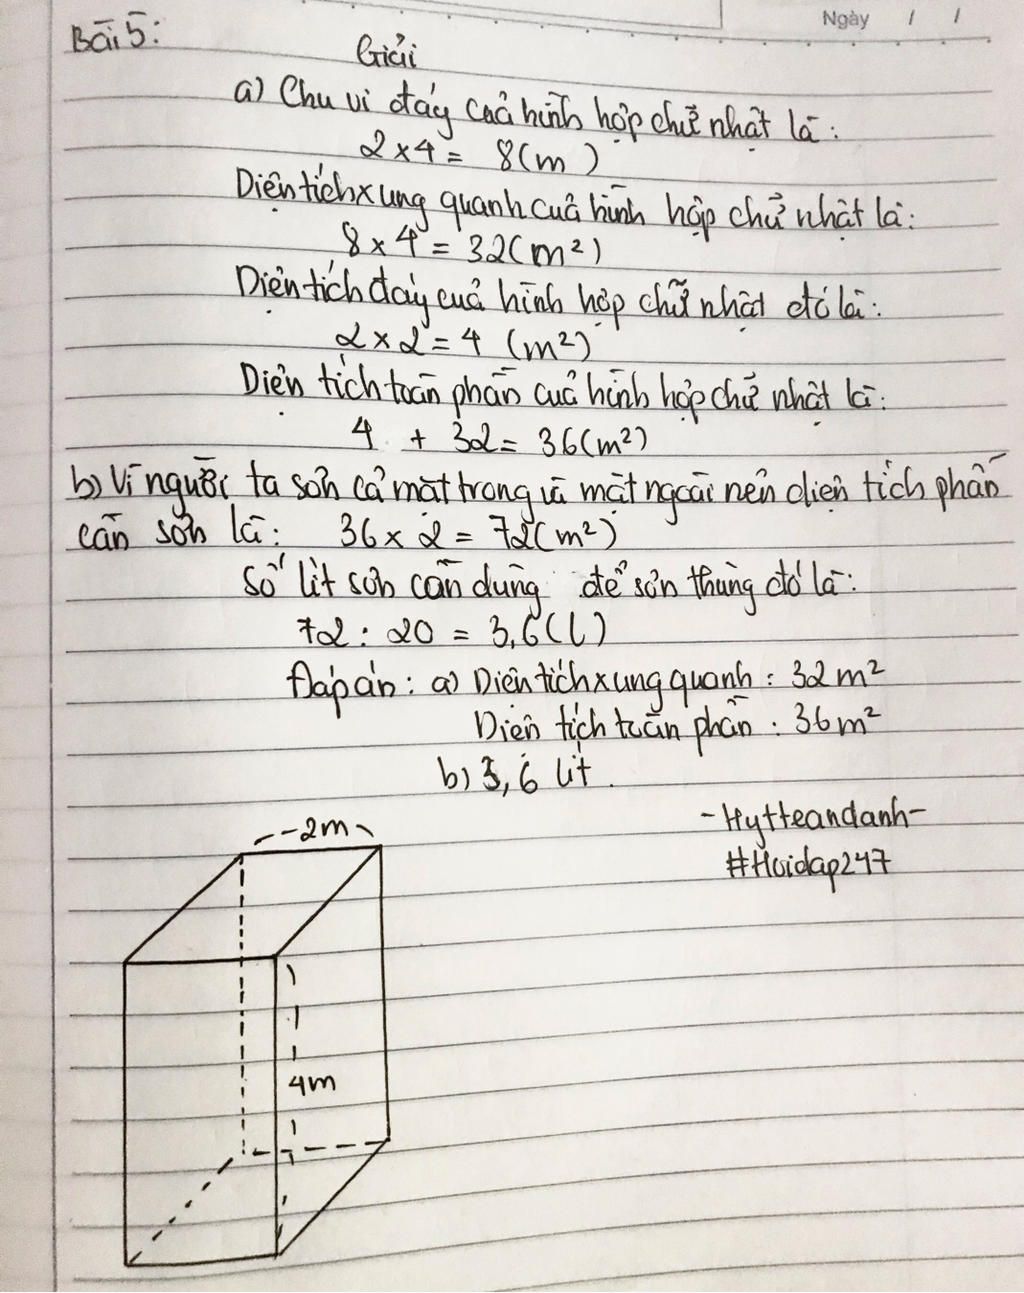 Ngày / /
Bài 5:
Giải
a) Chu vi đáy của hình hộp chữ nhật là:
2 x 4 = 8(m)
Diện tích xung quanh của hình hộp chữ nhật là:
8 x 4 = 32(m²)
Diện tích đáy của hình hộp chữ nhật đó là:
2 x 2 = 4 (m²)
Diện tích toàn phần của hình hộp chữ nhật là:
4 + 32 = 36(m²)
b) Vì người ta sơn cả mặt trong và mặt ngoài nên diện tích phần
cần sơn là: 36 x 2 = 72(m²)
Số lít sơn cần dùng để sơn thùng đó là:
72 : 20 = 3,6(l)
Đáp án: a) Diện tích xung quanh : 32m²
Diện tích toàn phần : 36m²
b) 3,6 lít.
-Hytteandanh-
#Hoidap247
2m
4m